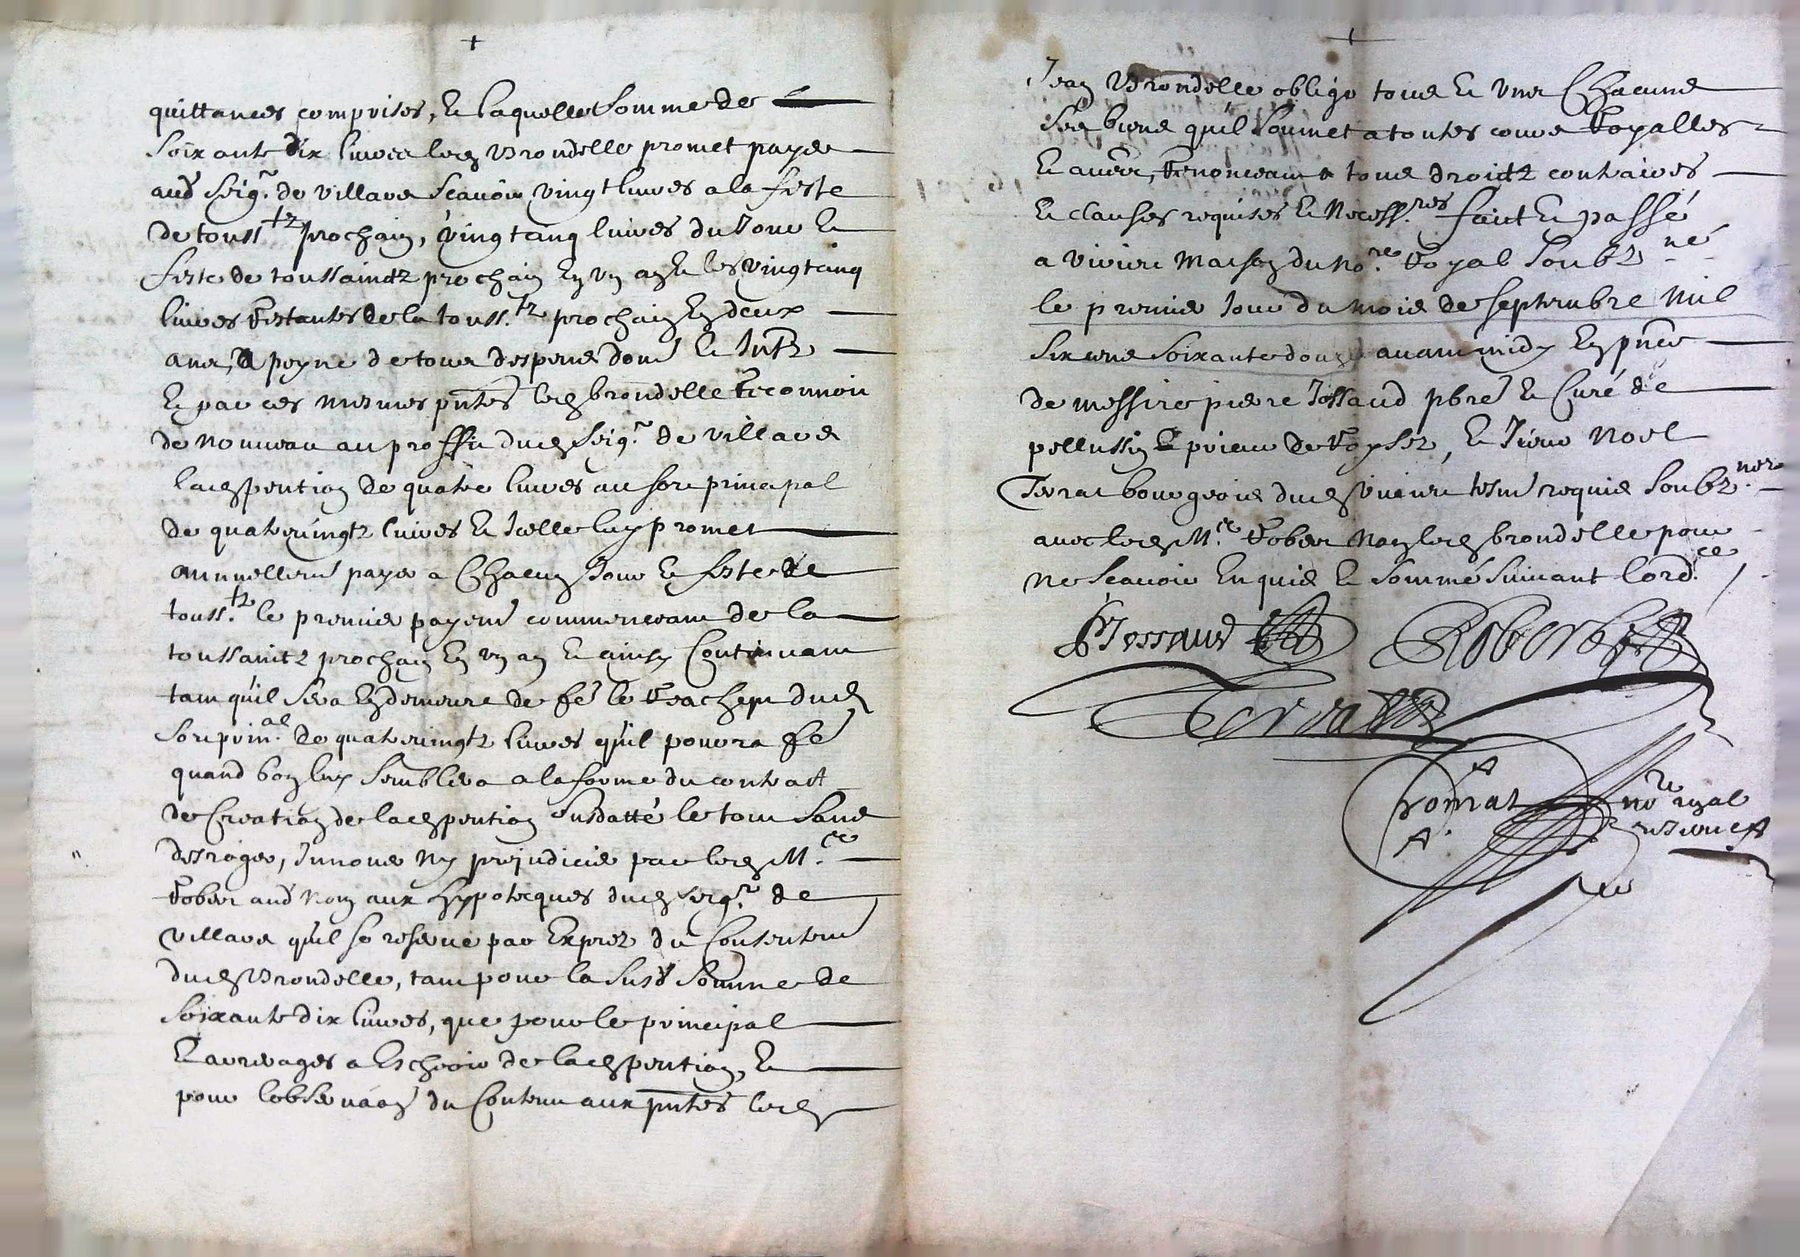 quittances comprises, et laquelle somme de
soixante dix livres led Brondelle promet payer
aud seigr. de villars scavoir vingt livres a la feste
de toussts prochain, vingt cinq livres du jour et
feste de toussainctz prochain en un an et les vingt cinq
livres restantes de la touss.tz prochain en deux
ans, a peyne de tous despens dom et Intz
Et par ces mesmes pntes led brondelle reconnoit
de nouveau au proffit dud seigr. de villars
lad pention de quatre livres au sort principal
de quatrevingtz livres et Icelle luy promet
annuellemt payer a Chacun Jour et feste de
touss.tz le premier payemt commenceant de la
toussainctz prochain en un an et ainsy Continuant
tant qu'il sera en demeure de fe le reachept dud
sort prin.al de quatrevingtz livres qu'il pourra fe
quand bon luy semblera a la forme du contract
de Creation de lad pention susdatté le tout sans
desroger, Innover ny prejudicier par led M.re
robert aud nom aux hypotecques dud seigr. de
villars qu'il se reserve par Exprez du Consentemt
dud Brondelle, tant pour la susd somme de
soixante dix livres, que pour le principal
Et arrerages a Escheoir de lad pention, Et
pour l'observaon du Contenu aux pntes led
Jean Brondelle oblige tous et uns Chacuns
ses biens qu'il soumet a toutes cours royalles
Et autres, renonceant a tous droictz contraires
Et clauses requises et necess.res faict et passé
a virieu maison du no.re royal soubz.né
le premier jour du mois de septembre mil
six cens soixante douze avant midy En pnce
de messire pierre Jossaud pbre et Curé de
pellussin et prieur de roysez, et sieur Noel
Tevrat bourgeois dud virieu tesm requis soubz.nez
avec led M.re robert non led brondelle pour
ne scavoir Enquis et sommé suivant l'ord.ce
PJossaud Robert
Tervat
no.re royal